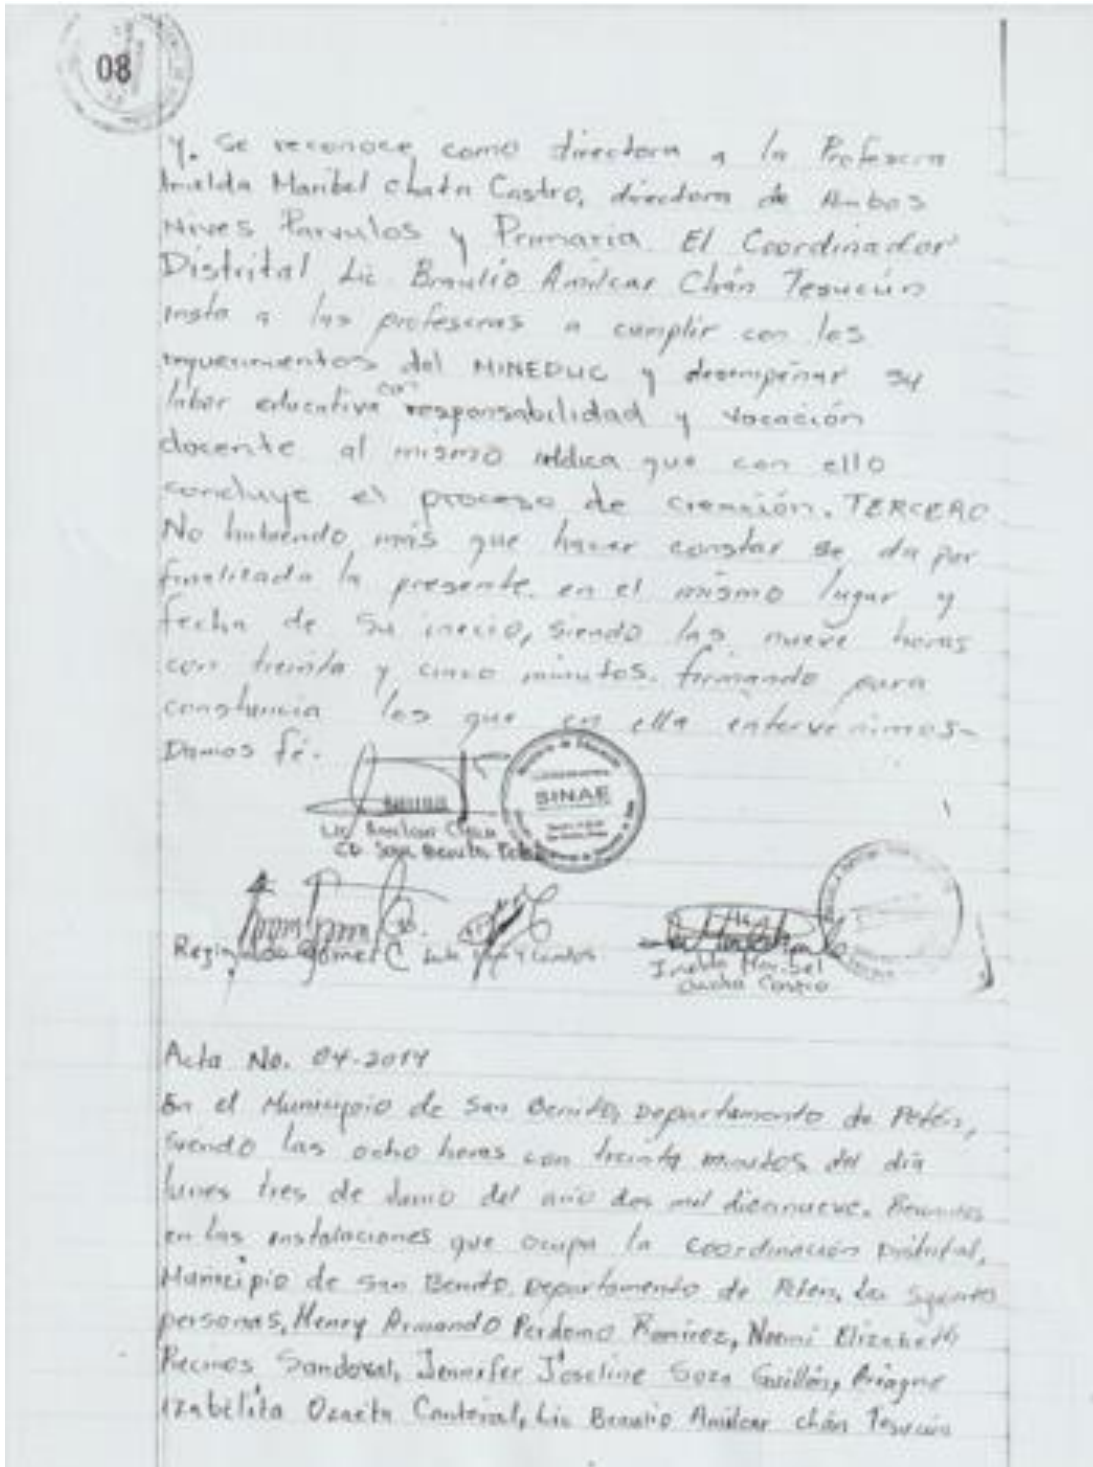 08
Y. Se reconoce como directora a la Profesora
Imelda Maribel Chata Castro, directora de Ambos
Nives Parvulos y Primaria El Coordinador
Distrital Lic. Braulio Amilcar Chán Tesucún
insta a las profesoras a cumplir con los
requerimientos del MINEDUC y desempeñar su
labor educativa con responsabilidad y vocación
docente al mismo indica que con ello
concluye el proceso de creación. TERCERO
No habiendo más que hacer constar se da por
finalizada la presente en el mismo lugar y
fecha de su inicio, siendo las nueve horas
con treinta y cinco minutos. firmando para
constancia los que en ella intervenimos-
Damos fé.
Ministerio de Educación
SINAE
Lic. Amilcar Chan
CD San Benito Petén
Reginaldo Gómez C
Imelda Maribel
Castro
Acta No. 04-2019
En el Municipio de San Benito, Departamento de Petén,
siendo las ocho horas con treinta minutos del día
lunes tres de Junio del año dos mil diecinueve. Reunidos
en las instalaciones que ocupa la Coordinación Distrital,
Municipio de San Benito, Departamento de Petén, las
personas, Henry Armando Perdomo Ramírez, Noemi Elizabeth
Recinos Sandoval, Jennifer Joseline Soza Guillén,
Izabelita Ozaeta Lic Braulio Amilcar chán Tesucún